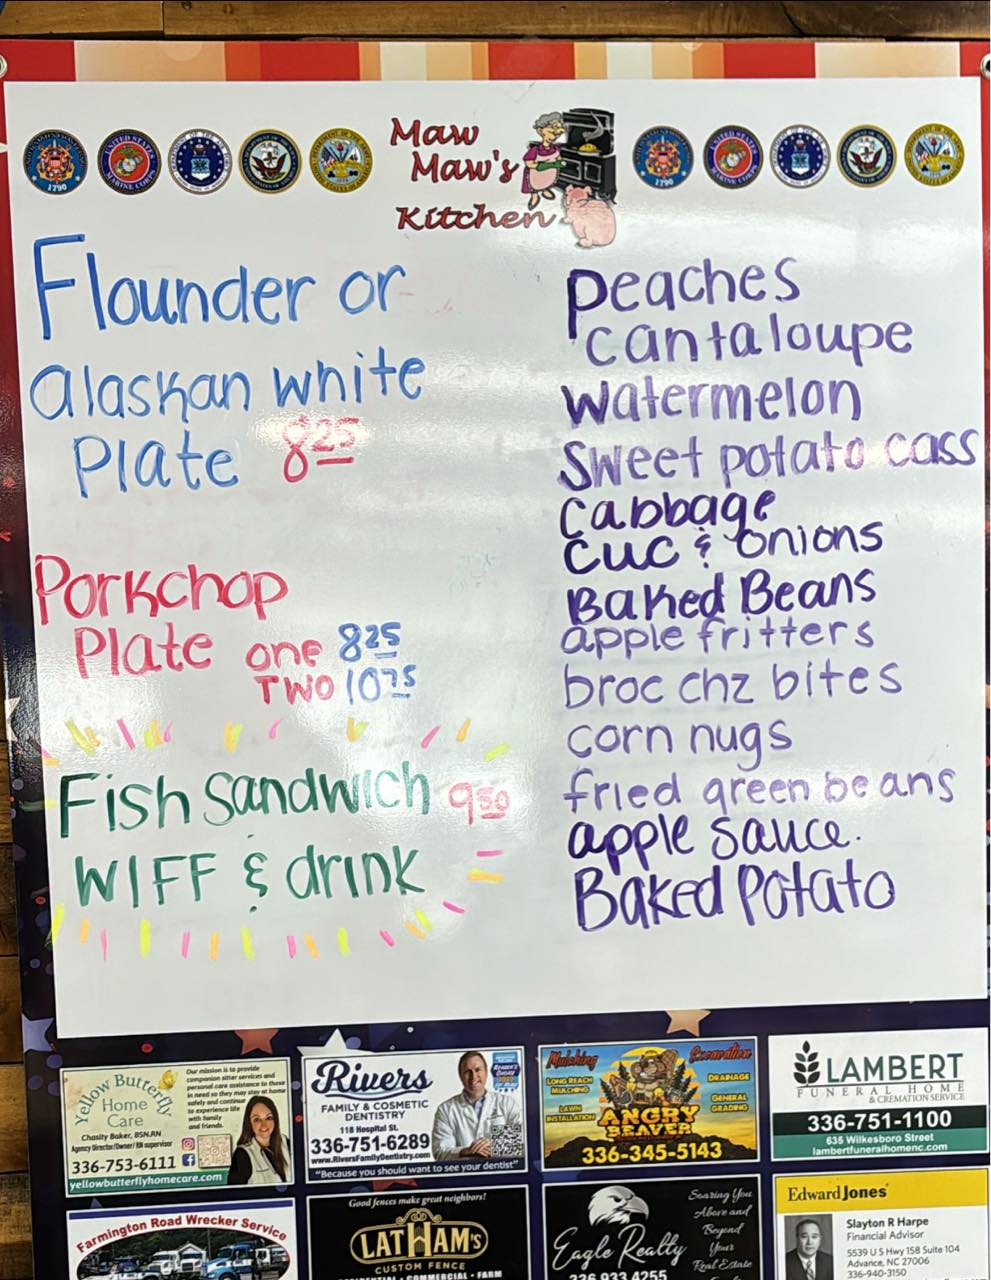 Maw
Maw's
Kitchen
1790
UNITED STATES
MARINE CORPS
1790
UNITED STATES
MARINE CORPS
Flounder or
alaskan white
Plate 8 25
Porkchop
Plate one 8 25
TWO 10 75
Fish Sandwich 9 50
WIFF & drink
Peaches
cantaloupe
Watermelon
Sweet potato cass
Cabbage
Cuc & onions
Baked Beans
apple fritters
broc chz bites
corn nugs
fried green beans
apple sauce.
Baked Potato
Yellow Butterfly
Home
Care
Our mission is to provide
companion sitter services and
personal care assistance to those
in need so they may stay at home
safely and continue
to experience life
with family
and friends.
Chasity Baker, BSN.RN
Agency Director/Owner/ RN supervisor
336-753-6111
yellowbutterflyhomecare.com
Rivers
FAMILY & COSMETIC
DENTISTRY
118 Hospital St.
336-751-6289
www.RiversFamilyDentistry.com
"Because you should want to see your dentist"
Mulching
Excavation
LONG REACH
MULCHING
LAWN
INSTALLATION
DRAINAGE
GENERAL
GRADING
ANGRY
BEAVER
336-345-5143
LAMBERT
FUNERAL HOME
& CREMATION SERVICE
336-751-1100
635 Wilkesboro Street
lambertfuneralhomenc.com
Farmington Road Wrecker Service
Good fences make great neighbors!
LATHAM'S
CUSTOM FENCE
RESIDENTIAL • COMMERCIAL • FARM
Eagle Realty
336.933.4255
Soaring You
Above and
Beyond
Your
Real Estate
Edward Jones
Slayton R Harpe
Financial Advisor
5539 U S Hwy 158 Suite 104
Advance, NC 27006
336-940-3150